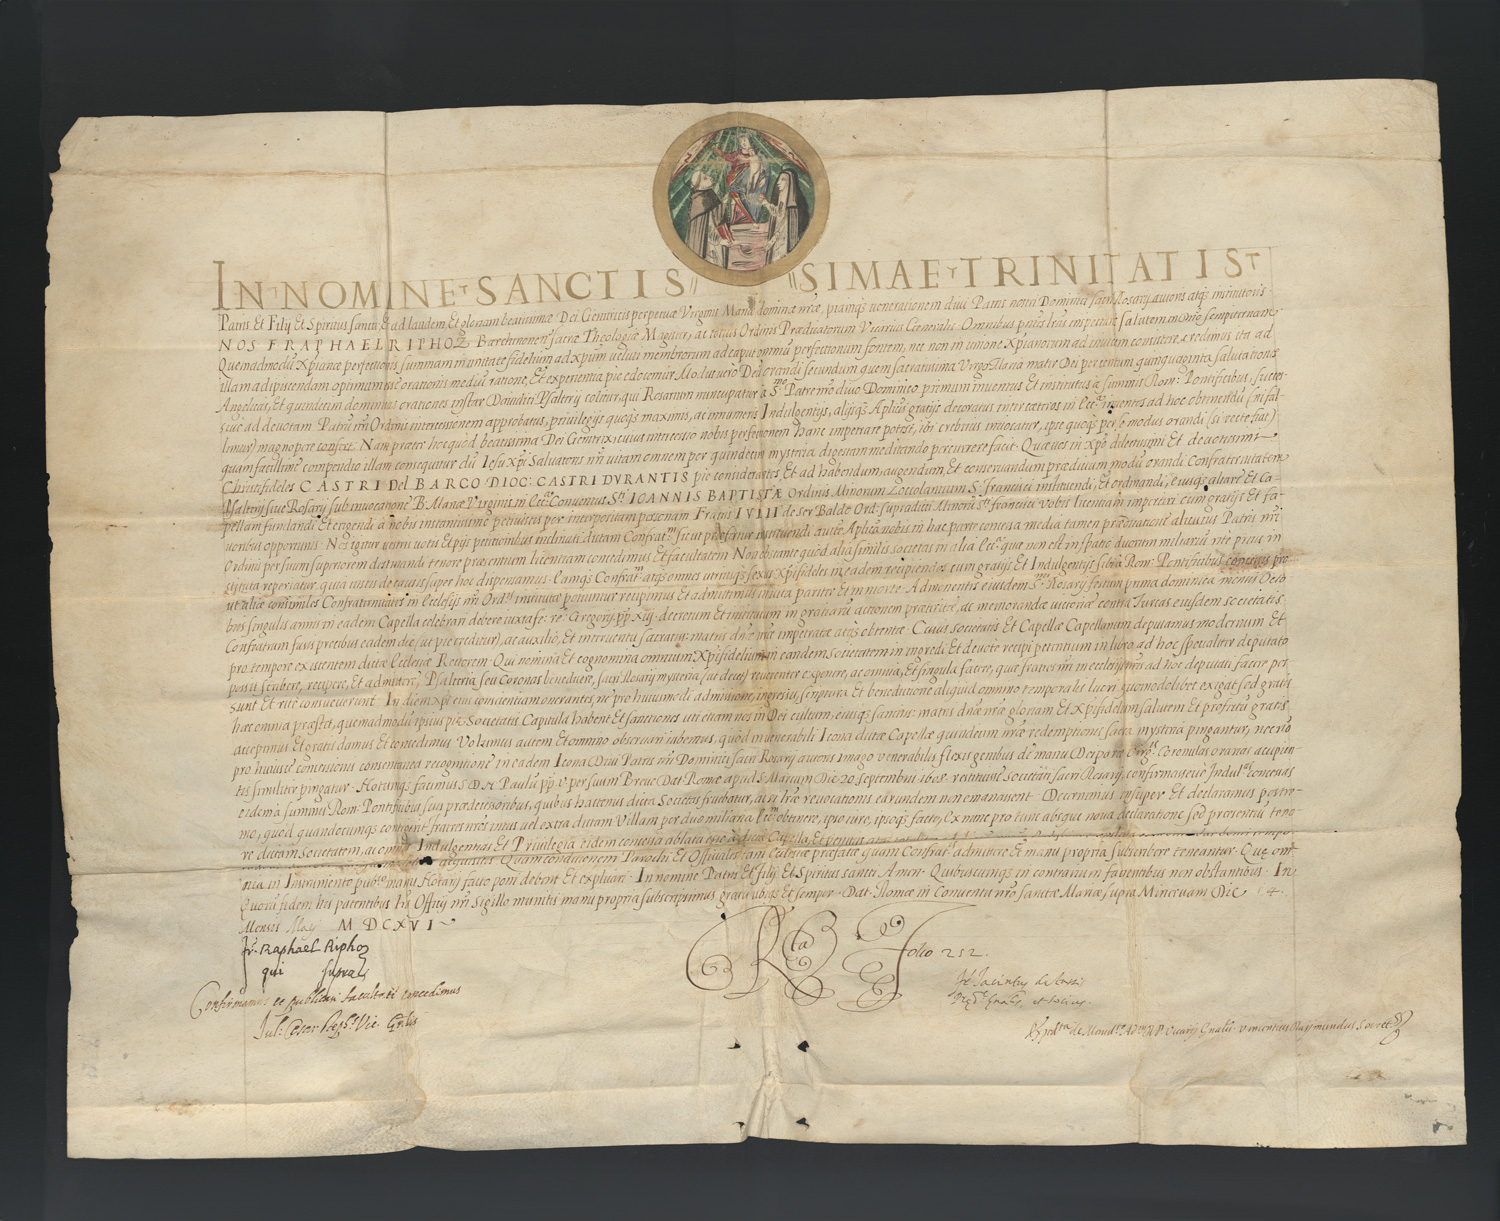 IN NOMINE SANCTIS SIMAE TRINITATIS
Patris Et Filij Et Spiritus sancti, Et ad laudem Et gloriam beatissimæ Dei Genitricis perpetuæ Virginis Mariæ dominæ nræ, piamqs venerationem divi Patris nostri Dominici sacri Rosarij autoris atqs institutoris
NOS F RAPHAEL RIPHOZ Barchinonen sacræ Theologiæ Magister, ac totius Ordinis Prædicatorum Vicarius Generalis. Omnibus salutem in Dno sempiternam
Quemadmodu Xpianæ perfectionis summam in unitate fidelium ad Xpum veluti membrorum ad caput omniu perfectionum fontem, nec non in unione Xpianorum ad invicem consistere credimus ita ad
illam adipiscendam optimum esse orationis mediu ratione, Et experientia pie edocemur. Modus vero Deu orandi secundum quem sacratissima Virgo Maria mater Dei per centum quinquaginta salutationes
Angelicas, Et quindecim dominicas orationes instar Davidici Psalterij colitur, qui Rosarium nuncupatur à Patre nro divo Dominico primum inventus Et institutus a summis Rom: Pontificibus, suces-
sive ad devotam Patru nri Ordinis intercessionem approbatus, privilegijs quoqs maximis, ac innumeris Indulgentijs, alijsqs Aplicis gratijs decoratus inter cæteros in Eccl inventos ad hoc obtinendu (ni fal-
limur) magnopere confert. Nam præter hoc quod beatissima Dei Genitrix, cuius intercessio nobis perfectionem hanc impetrare potest, ibi crebrius invocatur, ipse quoqs per se modus orandi (si recte fiat)
quam facillime compendio illam consequatur cu Iesu Xpi Salvatoris nri vitam omnem per quindecim mysteria digestam meditando percurrere facit. Quæ vos in Xpo dilectissimi Et devotissimi
Christifideles CASTRI Del BARCO DIOC: CASTRI DVRANTIS pie considerantes, Et ad habendum, augendum, Et conservandum prædictum modu orandi Confraternitatem
Psalterij sive Rosarij sub invocatione B. Mariæ Virginis in Conventus Sti IOANNIS BAPTISTÆ Ordinis Minorum Zoccolantium S. Francisci instituendi, Et ordinandi, eiusqs altare Et Ca-
pellam fundandi Et erigendi à nobis instantissime petivistis per interpositam personam Fratris IVLII de ser Baldo Ord: supradicti Minoru Sti francisci vobis licentiam impertiri cum gratijs Et fa-
voribus opportunis. Nos igitur vestris votis Et pijs petitionibus inclinati dictam Confrat sicut præfertur instituendi autte Aplica nobis in hac parte concessa media tamen prædicatione alicuius Patris nri
Ordinis per suum superiorem destinandi tenore præsentium licentiam concedimus Et facultatem Non obstante quòd alia similis societas in alia quæ non est in spatio duorum miliarium rite prius in
stituta reperiatur qua vestris devotis super hoc dispensamus. Eamqs Confrat atqs omnes utriusqs sexus Xpifideles in eadem recipiendos cum gratijs Et Indulgentijs Rom: Pontificibus concessis pro
ut aliæ consimiles Confraternitates in Ecclesijs nri Ordis institutæ potiuntur recipimus Et admittimus in vita pariter Et in morte. Admonentes eiusdem Rosarij festum prima dominica mensis Octo
bris singulis annis in eadem Capella celebrari debere iuxta fe: re: Gregorij pp xiij decretum Et institutum in gratiarum actionem præteritæ, ac memorandæ victoriæ contra Turcas eiusdem societatis
Confratrum fusis precibus eadem die (ut pie creditur), ac auxilio, Et interventu sacratis: matris dnæ nræ impetratæ atqs obtentæ. Cuius societatis Et Capellæ Capellanum deputamus modernum Et
pro tempore existentem dictæ Ecclesiæ Rectorem. Qui nomina Et cognomina omnium Xpifidelium in eandem societatem ingredi Et devote recipi petentium in libro ad hoc specialiter deputato
possit scribere, recipere, Et admittere, Psalteria seu Coronas benedicere, sacri Rosarij mysteria (sut decet) reverenter exponere, ac omnia, Et singula facere, quæ fratres nri in ecclesijs nris ad hoc deputati facere pos
sunt Et rite consueverunt. In diem Xpi eius conscientiam onerantes, ne pro huiusmodi admissione, ingressu, scriptura Et benedictione aliquid omnino temporalis lucri quomodolibet exigat sed gratis
hæc omnia præstet, quemadmodu ipsius piæ Societatis Capitula habent Et sanctiones uti etiam nos in Dei cultum, eiusqs sanctis: matris dnæ nræ gloriam Et Xpifidelium salutem Et profectu gratis
accepimus Et gratis damus Et concedimus Volumus autem Et omnino observari iubemus, quòd in venerabili Icona dictæ Capellæ quindecim nræ redemptionis sacra mysteria pingantur, nec nò
pro huiusce concessionis consentanea recognitione in eadem Icona Divi Patris nri Dominici sacri Rosarij autoris imago venerabilis flexis genibus de manu Deiparæ Virgis Coronulas orarias accipien-
tis similiter pingatur. Notumqs facimus S. D. N. Paulu pp v per suum Breve Dat. Romæ apud S. Marcum Die 20 septembris 1608. restituisse Societati sacri Rosarij, confirmasseq Indul concessas
eidem à summis Rom: Pontificibus suis prædecessoribus, quibus hactenus dicta Societas fruebatur, ac si træ revocationis earundem non emanassent. Decernimus insuper Et declaramus postre-
mo, quòd quandocunqs contigerit fratres nros intus vel extra dictam Villam per duo miliaria obtinere, ipso iure, ipsoqs facto, Ex nunc pro tunc absque nova declaratione sed præsentiu teno-
re dictam societatem, ac omnes Indulgentias Et Privilegia eidem concessa ablata esse à dicta Capella, Et penitus
Quam conditionem Parochi Et Officiales tam Ecclesiæ præfatæ quam Confrat admittere Et manu propria subscribere teneantur. Quę om
nia in Instrumento pubco manu Notarij facto poni debent Et explicari. In nomine Patris Et filij Et Spiritus sancti Amen. Quibuscunqs in contrarium facientibus non obstantibus. In
Quoru fidem his patentibus litt Officij nri Sigillo munitis manu propria subscripsimus gratis ubiqs Et semper. Dat. Romæ in Conventu nro sanctæ Mariæ supra Minervam Die 4.
Mensis Maij MDCXVI
fr. Raphael Riphoz
qui supra
Confirmamus et publicari facultatē concedimus
Jul: Cesar Vic. Gnlis
Rta Folio 252.
fr Iacintus
Gnalis, et socius.
de Mand P. Vicarij Gnalis. Vincentius Raymundus Secret.